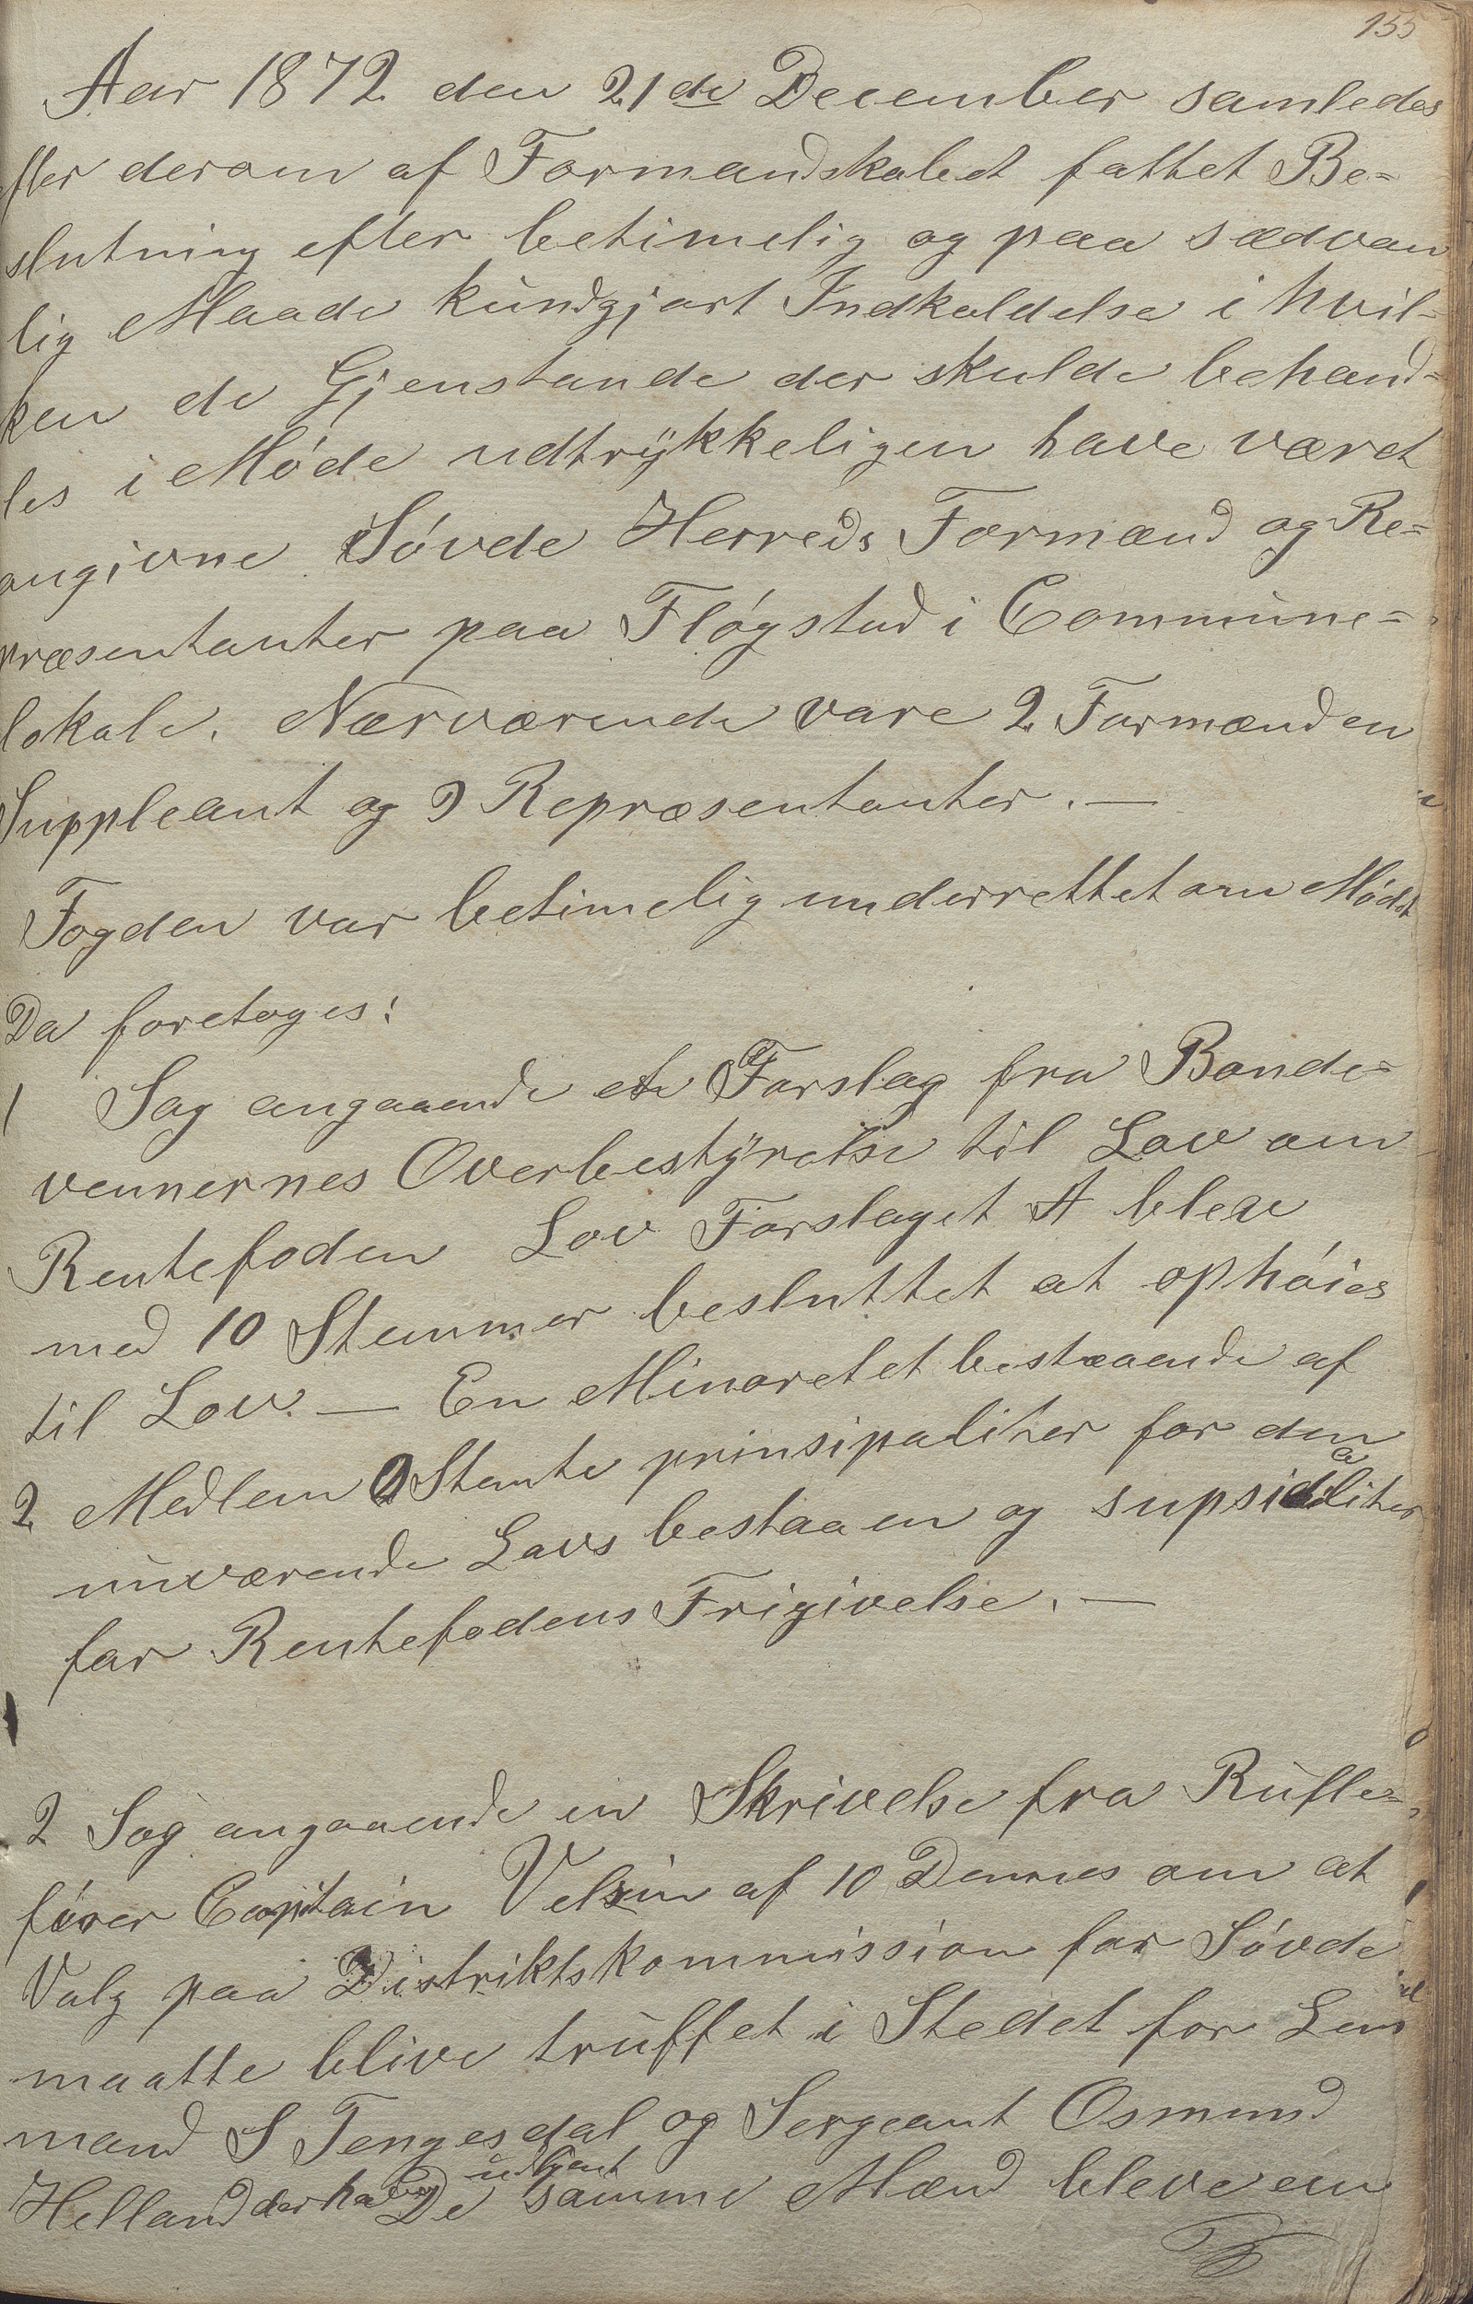 155
Aar 1872 den 21de December samledes
efter derom af Formandskabet fattet Be=
slutning efter betimelig og paa sædvan
lig Maade kundgjort Indkaldelse i hvil=
ken de Gjenstande der skulde behand=
les i Møde udtrykkeligen have været
angivne Søvde Herreds Formænd og Re=
præsentanter paa Fløgstad i Commune=
lokale. Nærværende vare 2 Formænd en
Suppleant og 9 Repræsentanter. —
Fogden var betimelig underrettet om Mødet
Da foretoges:
1 Sag angaaende et Forslag fra Bonde=
vennernes Overbestyrelse til Lov om
Rentefoden Lov Forslaget A bleve
med 10 Stemmer besluttet at ophøies
til Lov. — En Minoretet bestaaende af
2 Medlem Stemte prinsipaliter for den
nuværende Lovs bestaaen og supsidialiter
for Rentefodens Frigivelse. —
2 Sag angaaende en Skrivelse fra Rulle=
fører Capitain Velsin af 10 Dennes om at
Valg paa Distriktskommission for Søvde
maatte blive truffet i Stedet for Lens
mand S Tengesdal og Sergeant Osmund
Helland der have udtjent De samme Mænd bleve en